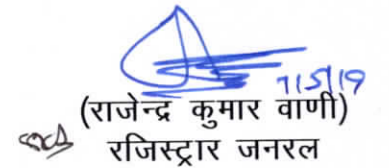 7/5/19
(राजेन्द्र कुमार वाणी)
रजिस्ट्रार जनरल